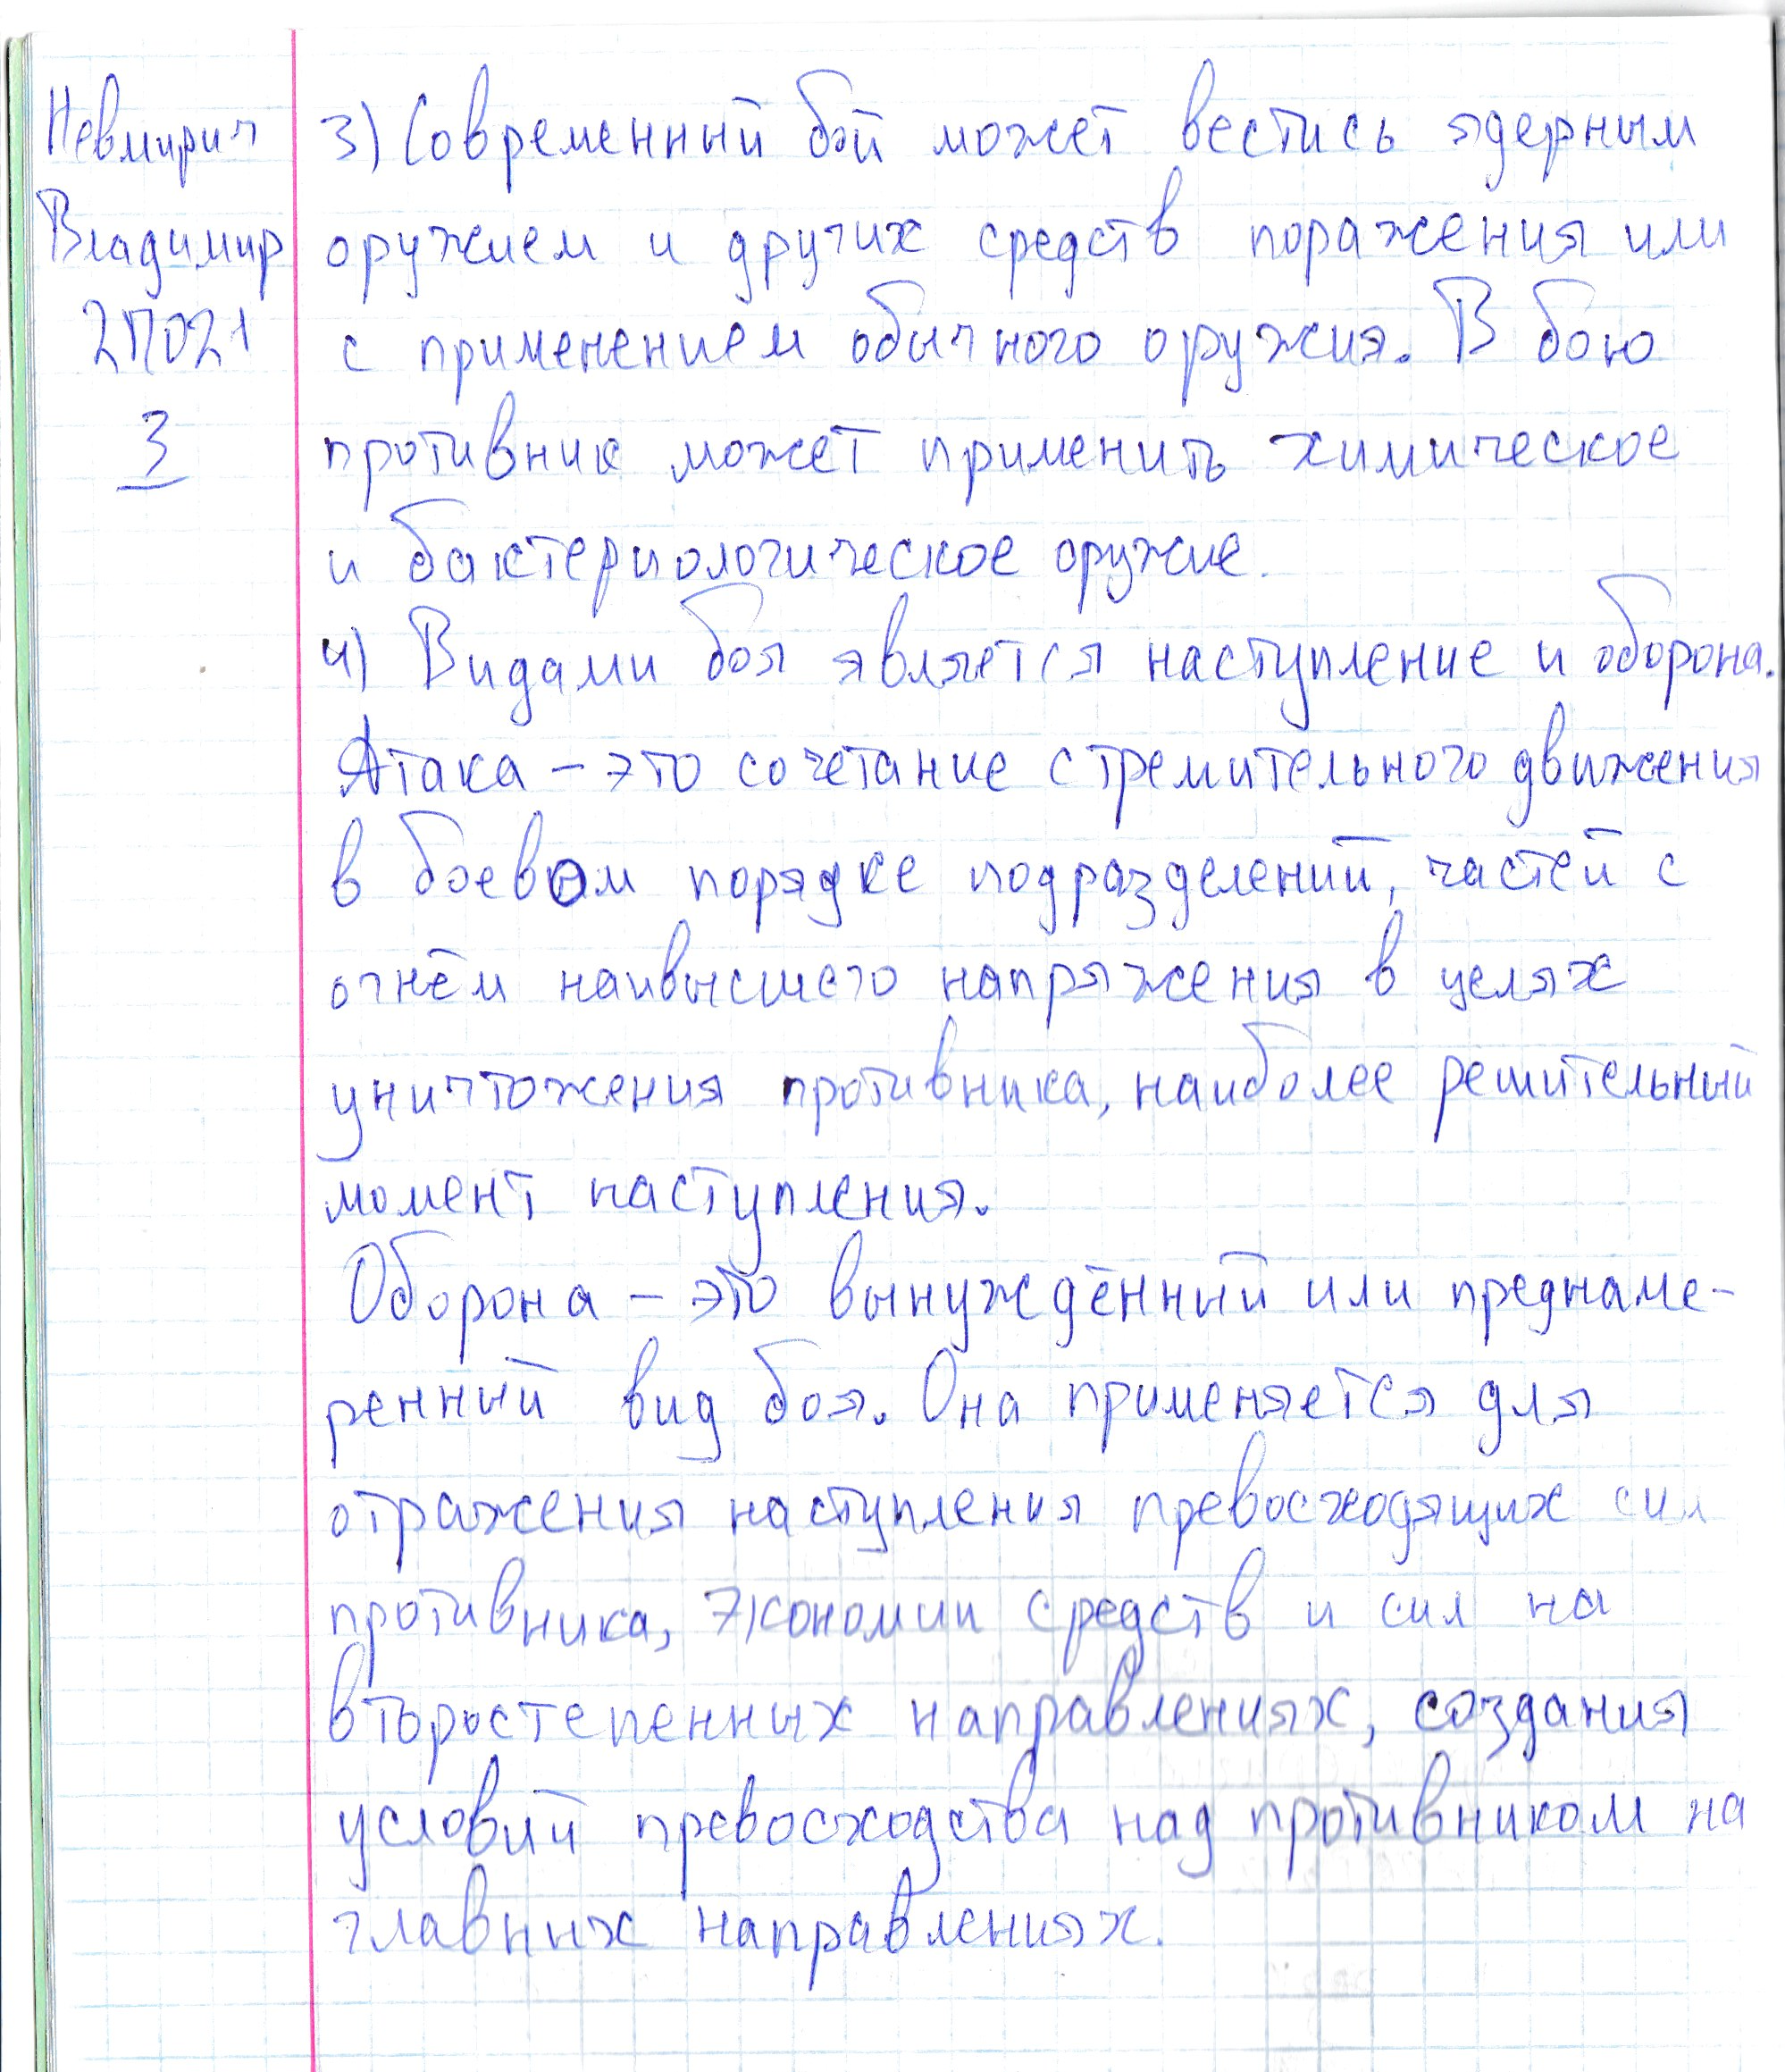 Невмирич
Владимир
2П021
3
3) Современный бой может вестись ядерным
оружием и других средств поражения или
с применением обычного оружия. В бою
противник может применить химическое
и бактериологическое оружие.
4) Видами боя является наступление и оборона.
Атака – это сочетание стремительного движения
в боевом порядке подразделений, частей с
огнём наивысшего напряжения в целях
уничтожения противника, наиболее решительный
момент наступления.
Оборона – это вынуждённый или преднаме-
ренный вид боя. Она применяется для
отражения наступления превосходящих сил
противника, экономии средств и сил на
второстепенных направлениях, создания
условий превосходства над противником на
главных направлениях.